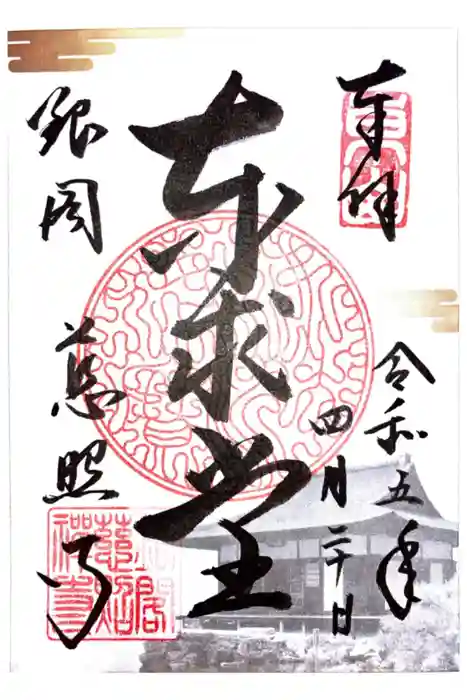 奉拝
令和五年
四月二十日
東求堂
銀閣
慈照寺